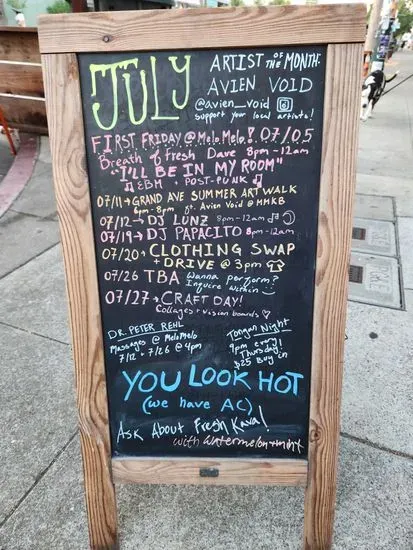 JULY
ARTIST OF THE MONTH:
AVIEN VOID
@avien_void
support your local artists!
FIRST FRIDAY @ MeloMelo! 07/05
Breath of Fresh Dave 8pm-12am
"I'LL BE IN MY ROOM"
♫ EBM + POST-PUNK ♫
07/11→GRAND AVE SUMMER ART WALK
6pm-8pm ft. Avien Void @ MMKB
07/12→DJ LUNZ 8pm-12am
07/19→DJ PAPACITO 8pm-12am
07/20→CLOTHING SWAP
+ DRIVE @ 3pm
07/26 TBA Wanna perform?
Inquire Within
07/27→CRAFT DAY!
Collages + Vision boards ♡
DR. PETER REHL
Massages @ MeloMelo
7/12 + 7/26 @ 4pm
Tongan Night
9pm every
Thursday!
$25 Buy in
YOU LOOK HOT
(we have AC)
ASK About Fresh Kava!
with watermelon + mint